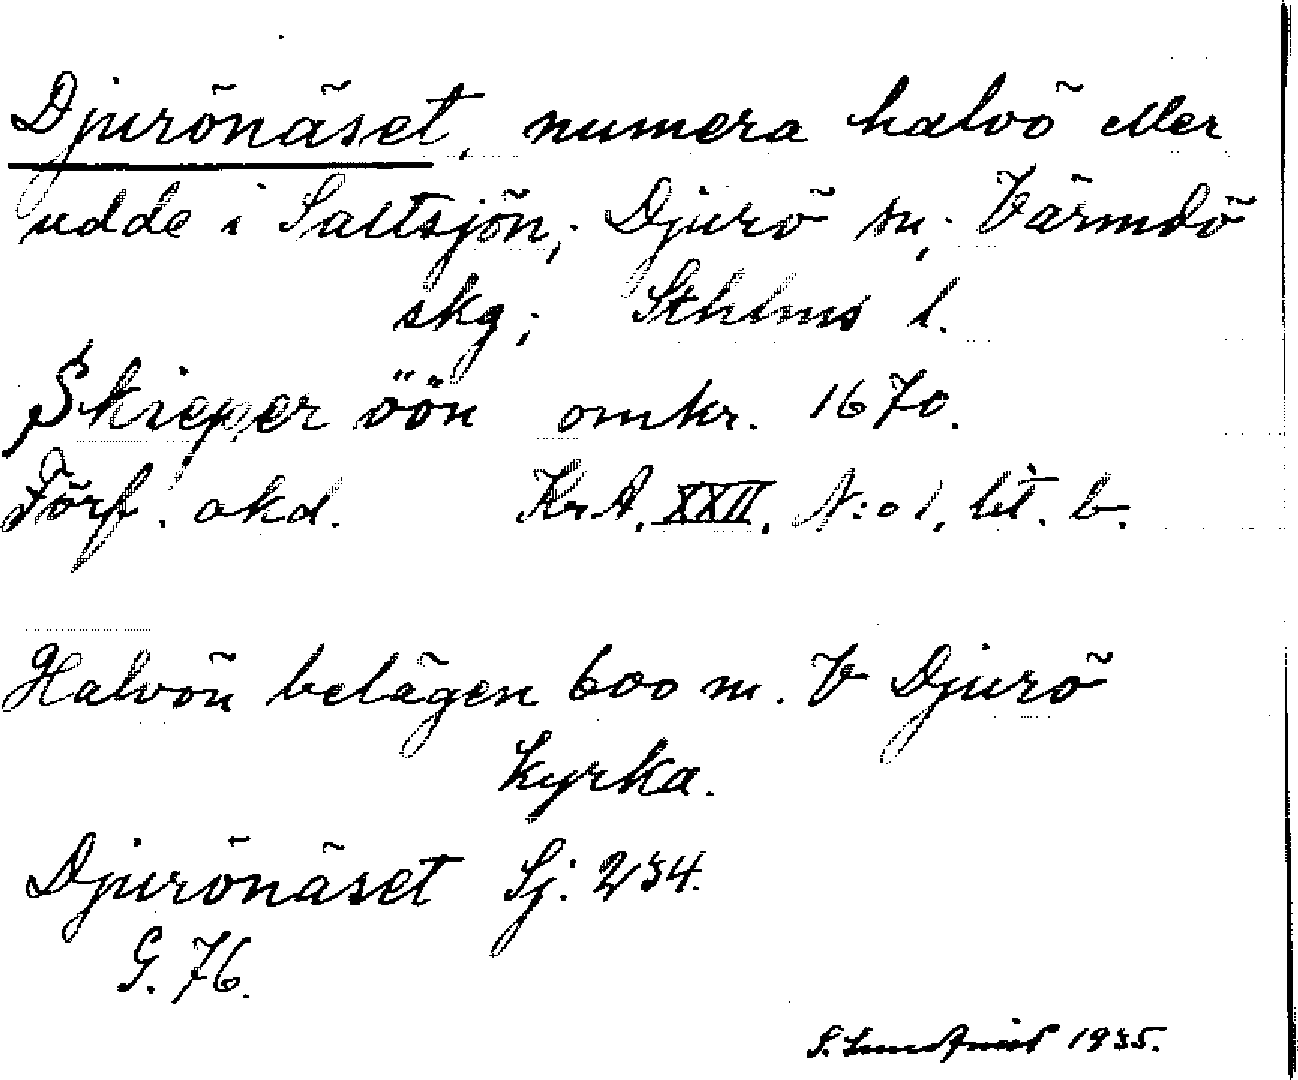 Djurönäset, numera halvö eller
udde i Saltsjön; Djurö sn; Värmdö
skg; Sthlms l.
Skieper öön omkr. 1670.
Förf. okd. KrA. XXII, N:o 1, lit. b.
Halvön belägen 600 m. V Djurö
kyrka.
Djurönäset Sj. 234.
G. 76.
S. Lundqvist 1935.